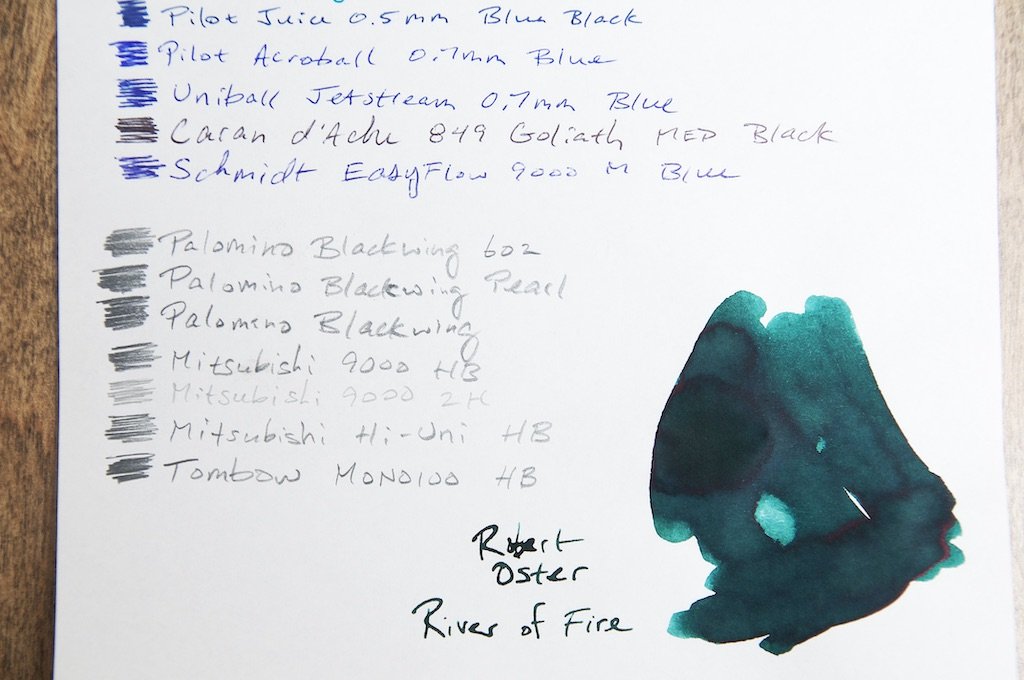 Pilot Juice 0.5mm Blue Black
Pilot Acroball 0.7mm Blue
Uniball Jetstream 0.7mm Blue
Caran d'Ache 849 Goliath MED Black
Schmidt EasyFlow 9000 M Blue
Palomino Blackwing 602
Palomino Blackwing Pearl
Palomino Blackwing
Mitsubishi 9000 HB
Mitsubishi 9000 2H
Mitsubishi Hi-Uni HB
Tombow MONO100 HB
Robert
Oster
River of Fire